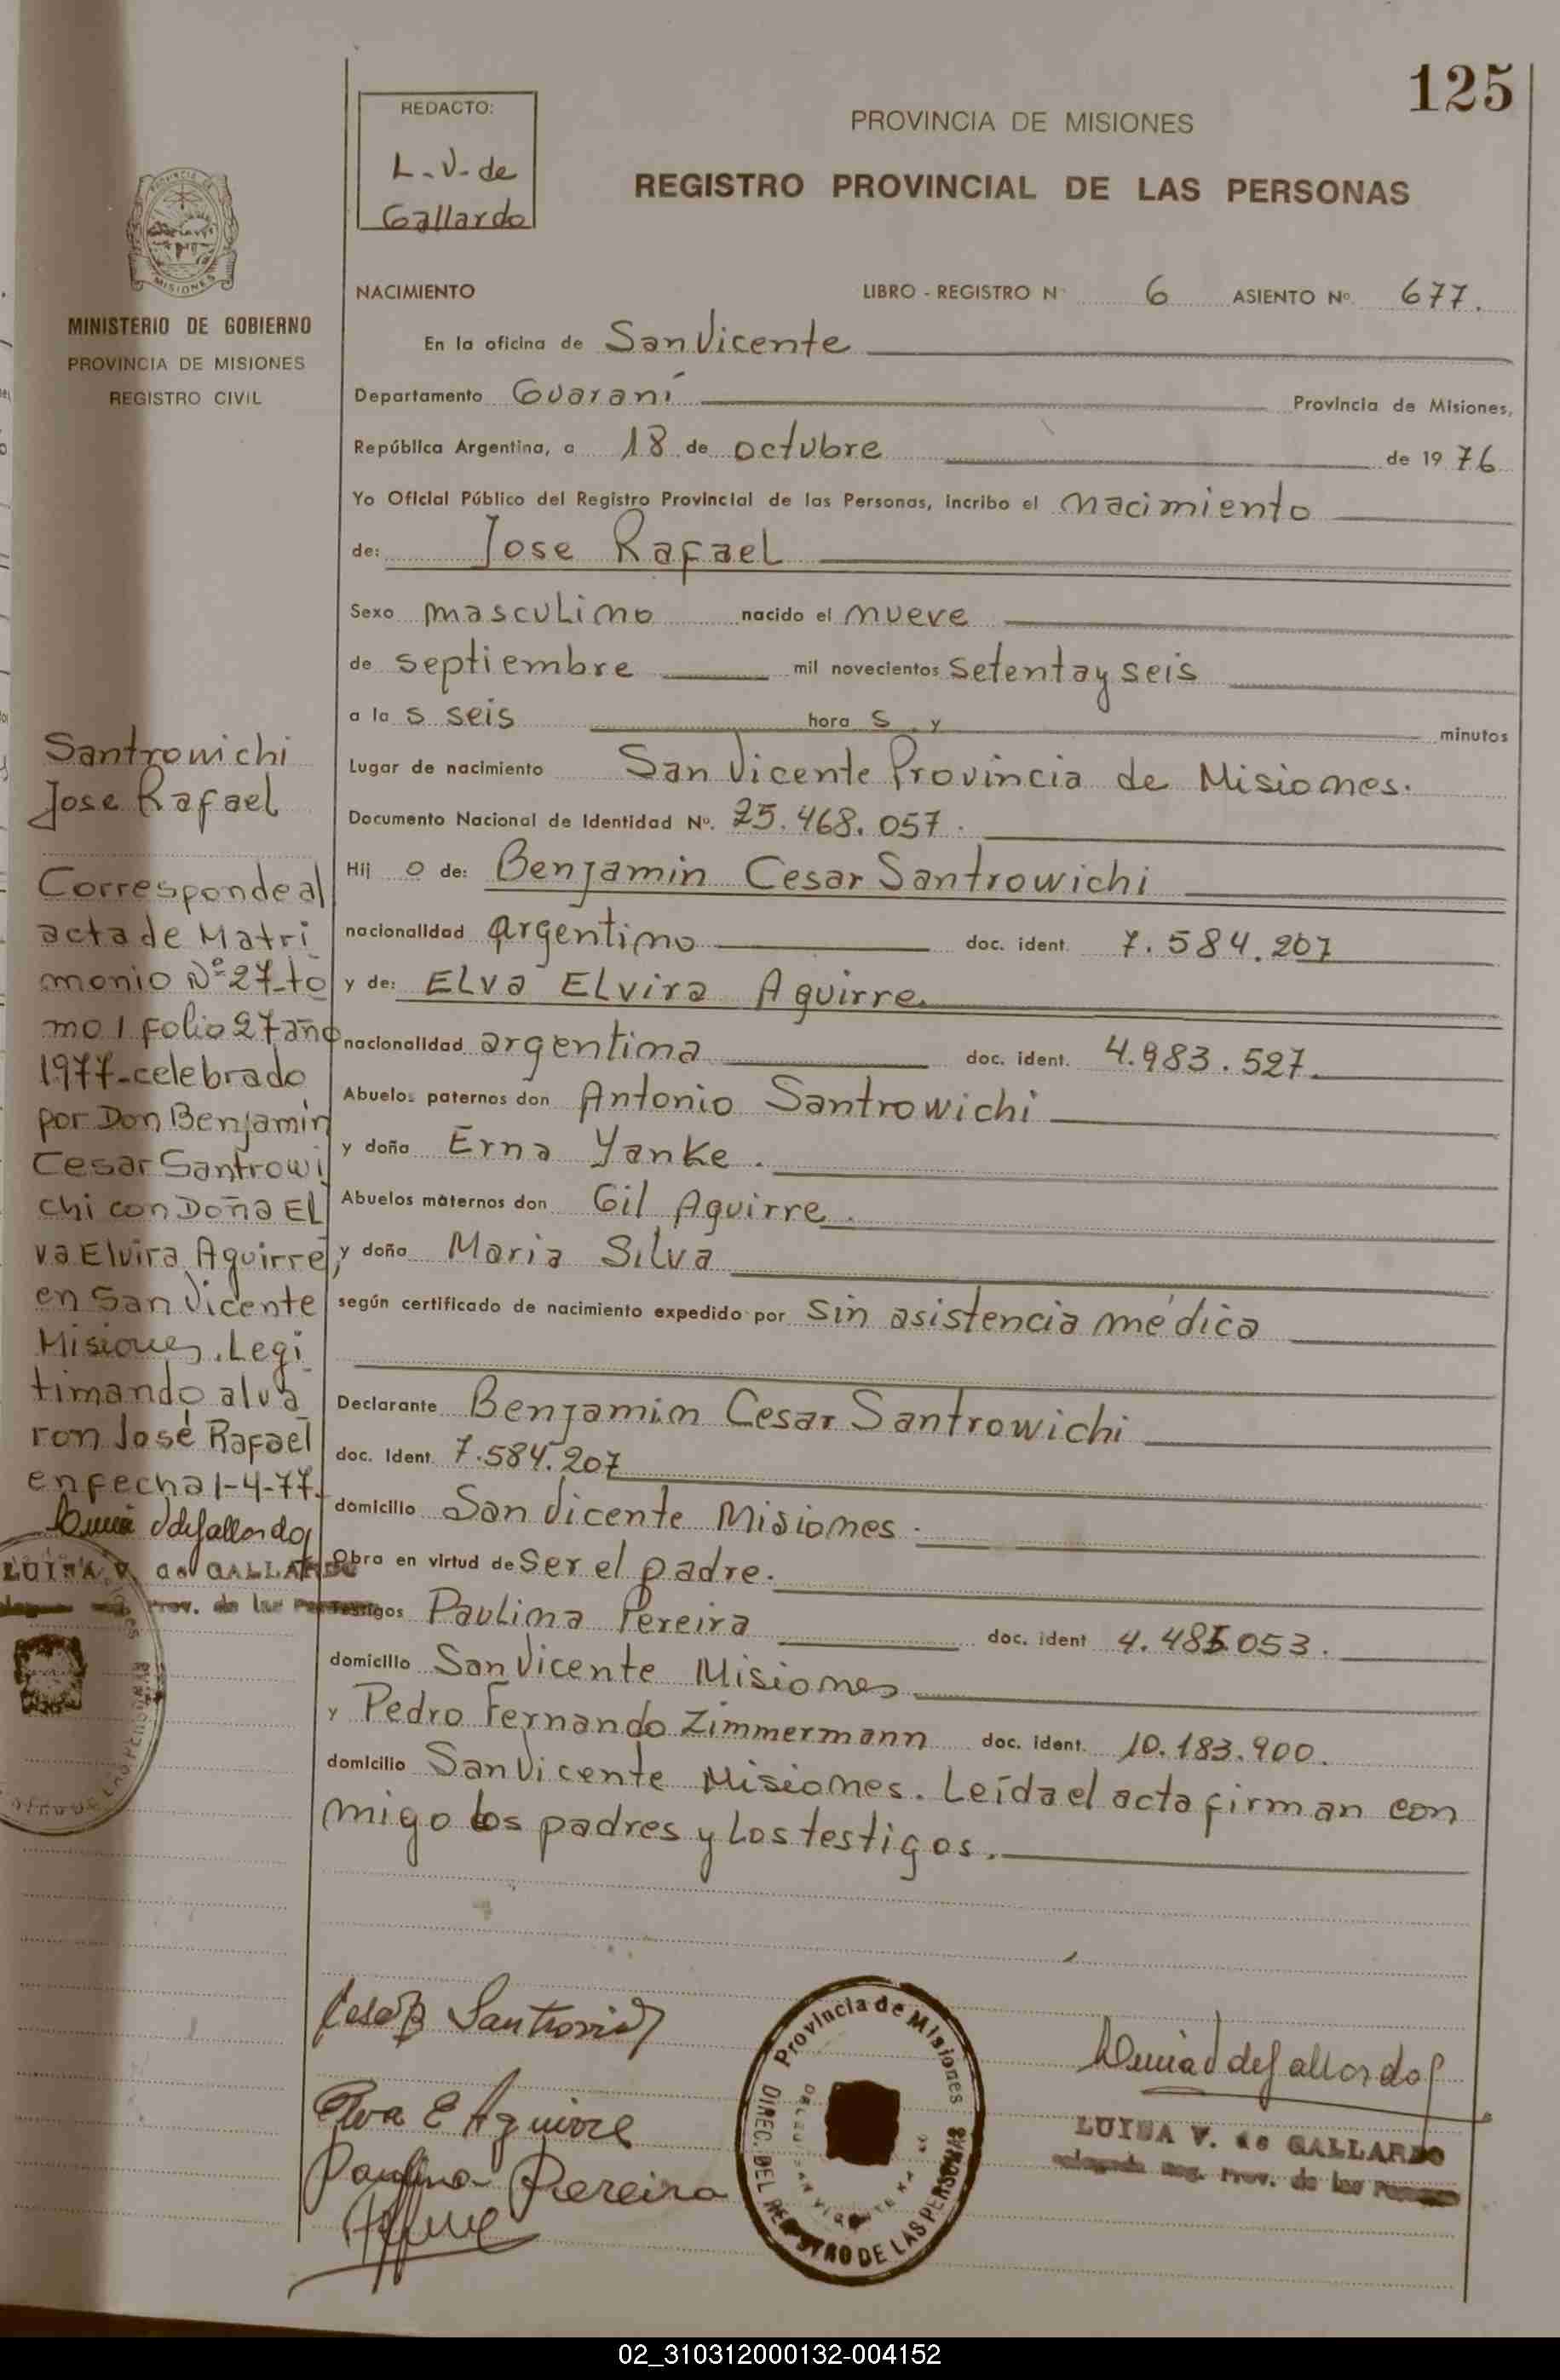 125
REDACTO:
L.V. de
Gallardo
PROVINCIA DE MISIONES
REGISTRO PROVINCIAL DE LAS PERSONAS
MISIONES
MINISTERIO DE GOBIERNO
PROVINCIA DE MISIONES
REGISTRO CIVIL
NACIMIENTO LIBRO - REGISTRO N° 6 ASIENTO Nº. 677.
En la oficina de San Vicente
Departamento Guaraní Provincia de Misiones,
República Argentina, a 18 de octubre de 1976
Yo Oficial Público del Registro Provincial de las Personas, incribo el nacimiento
de: Jose Rafael
Sexo masculino nacido el nueve
de septiembre mil novecientos setenta y seis
a las seis horas y minutos
Lugar de nacimiento San Vicente Provincia de Misiones.
Documento Nacional de Identidad Nº. 25.468.057.
Hijo de: Benjamin Cesar Santrowichi
nacionalidad argentino doc. ident. 7.584.207
y de: Elva Elvira Aguirre.
nacionalidad argentina doc. ident. 4.983.527.
Abuelos paternos don Antonio Santrowichi
y doña Erna Yanke.
Abuelos maternos don Gil Aguirre.
y doña Maria Silva
según certificado de nacimiento expedido por sin asistencia médica
Declarante Benjamin Cesar Santrowichi
doc. Ident. 7.584.207
domicilio San Vicente Misiones.
Obra en virtud de ser el padre.
Testigos Paulina Pereira doc. ident 4.485.053.
domicilio San Vicente Misiones
y Pedro Fernando Zimmermann doc. ident. 10.183.900.
domicilio San Vicente Misiones. Leída el acta firman con
migo los padres y los testigos.
Santrowichi
Jose Rafael
Corresponde al
acta de Matri
monio Nº 27-to
mo 1 folio 27 año
1977-celebrado
por Don Benjamin
Cesar Santrowi
chi con Doña El
va Elvira Aguirre,
en San Vicente
Misiones. Legi
timando al va
ron José Rafael
en fecha 1-4-77.
LUISA V. de GALLARDO
Prov. de las
Elva E Aguirre
Paulina Pereira
Provincia de Misiones
DIREC. DEL REGISTRO DE LAS PERSONAS
LUISA V. de GALLARDO
Reg. Prov. de las
02_310312000132-004152